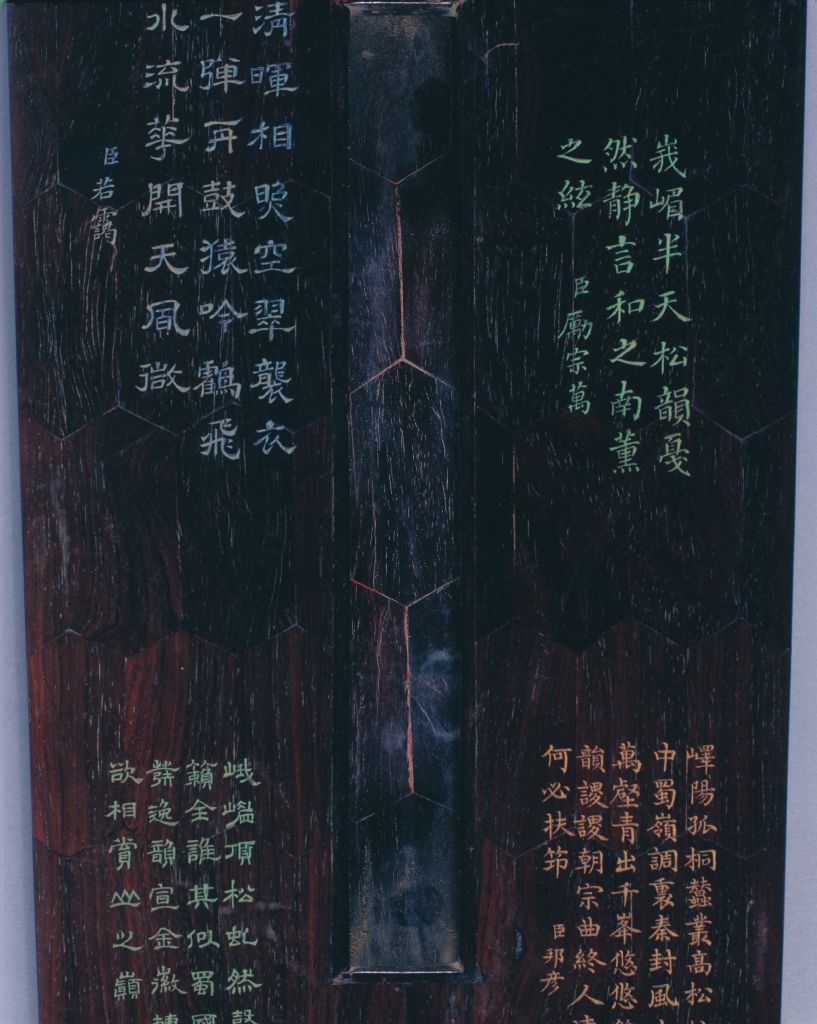 峩嵋半天松韻戞
然静言和之南薰
之絃
臣勵宗萬
清暉相映空翠襲衣
一弾再鼓猿吟鶴飛
水流華開天風微
臣若靄
嶧陽孤桐蠶叢高松
中蜀嶺調裏秦封風
萬壑青出千峯悠悠
韻謖謖朝宗曲終人
何必扶筇
臣邦彦
峨 頂松虬然
籟全誰其似蜀國
發逸韻宣金徽
欲相賞 之巔